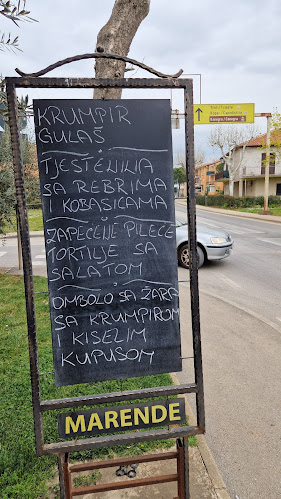 KRUMPIR
GULAŠ
TJESTENINA
SA REBRIMA
I KOBASICAMA
ZAPEČENE PILEĆE
TORTILJE SA
SALATOM
OMBOLO SA ŽARA
SA KRUMPIROM
I KISELIM
KUPUSOM
MARENDE